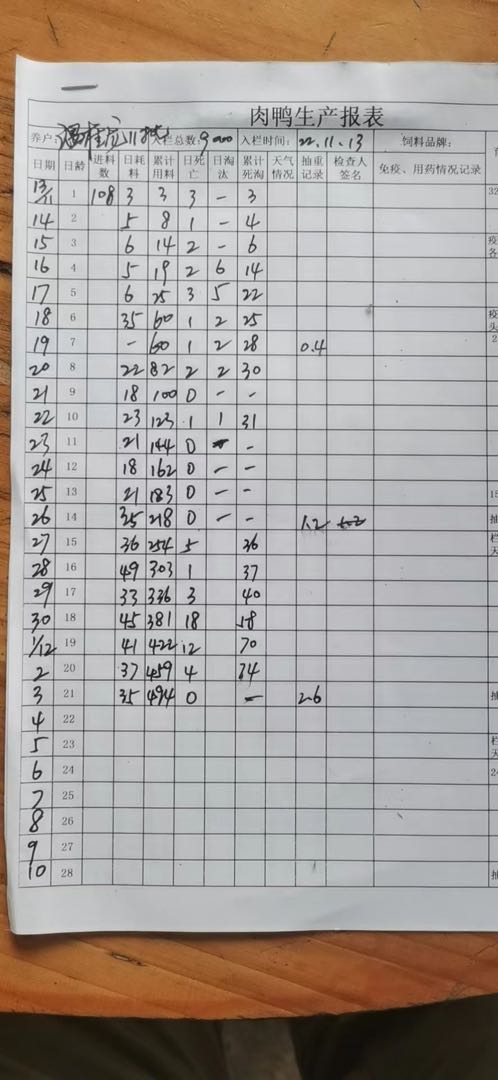 肉鸭生产报表
养户: 11批 入栏总数: 9000 入栏时间: 22.11.13 饲料品牌:
日期 日龄 进料数 日耗料 累计用料 日死亡 日淘汰 累计死淘 天气情况 抽重记录 检查人签名 免疫、用药情况记录
13/11 1 108 3 3 3 - 3 32
14 2 5 8 1 - 4
15 3 6 14 2 - 6 疫各
16 4 5 19 2 6 14
17 5 6 25 3 5 22
18 6 35 60 1 2 25 疫头
19 7 - 60 1 2 28 0.4 2
20 8 22 82 2 2 30
21 9 18 100 0 - -
22 10 23 123 1 1 31
23 11 21 144 0 - -
24 12 18 162 0 - -
25 13 21 183 0 - - 15
26 14 35 218 0 - - 1.2 抽
27 15 36 254 5 36 栏天
28 16 49 303 1 37
29 17 33 336 3 40
30 18 45 381 18 58
1/12 19 41 422 12 70
2 20 37 459 4 74
3 21 35 494 0 - 2.6 抽
4 22
5 23 栏天
6 24 24
7 25
8 26
9 27
10 28 抽